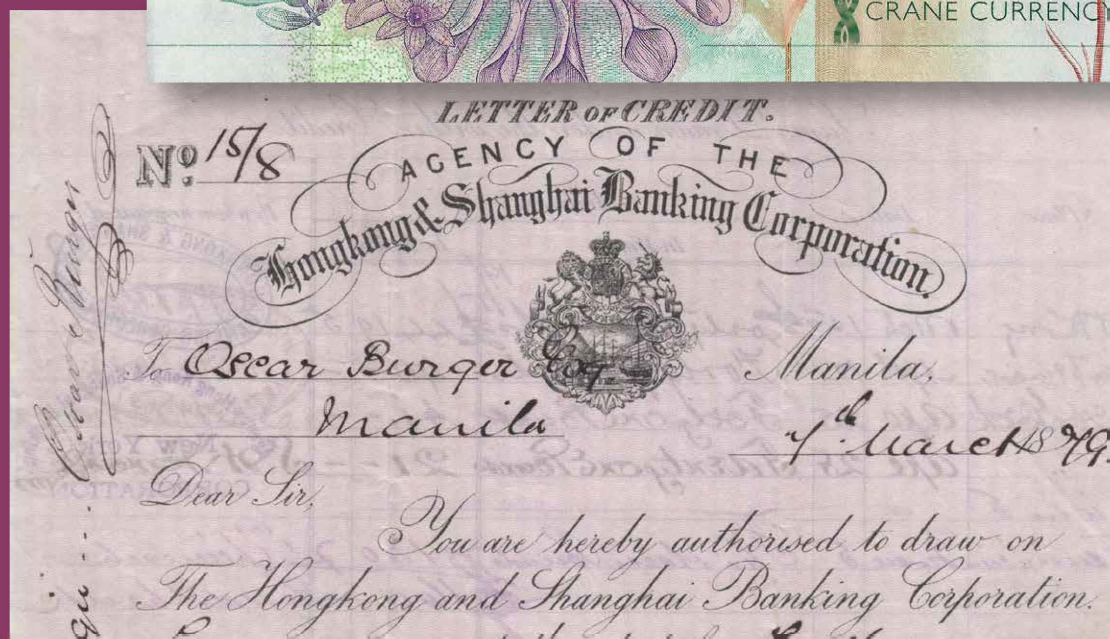 CRANE CURRENCY
LETTER OF CREDIT.
No. 15/8
AGENCY OF THE
Hongkong & Shanghai Banking Corporation.
To Oscar Burger Esq
Manila
Manila,
7th March 1879
Dear Sir,
You are hereby authorised to draw on
The Hongkong and Shanghai Banking Corporation.
Burger